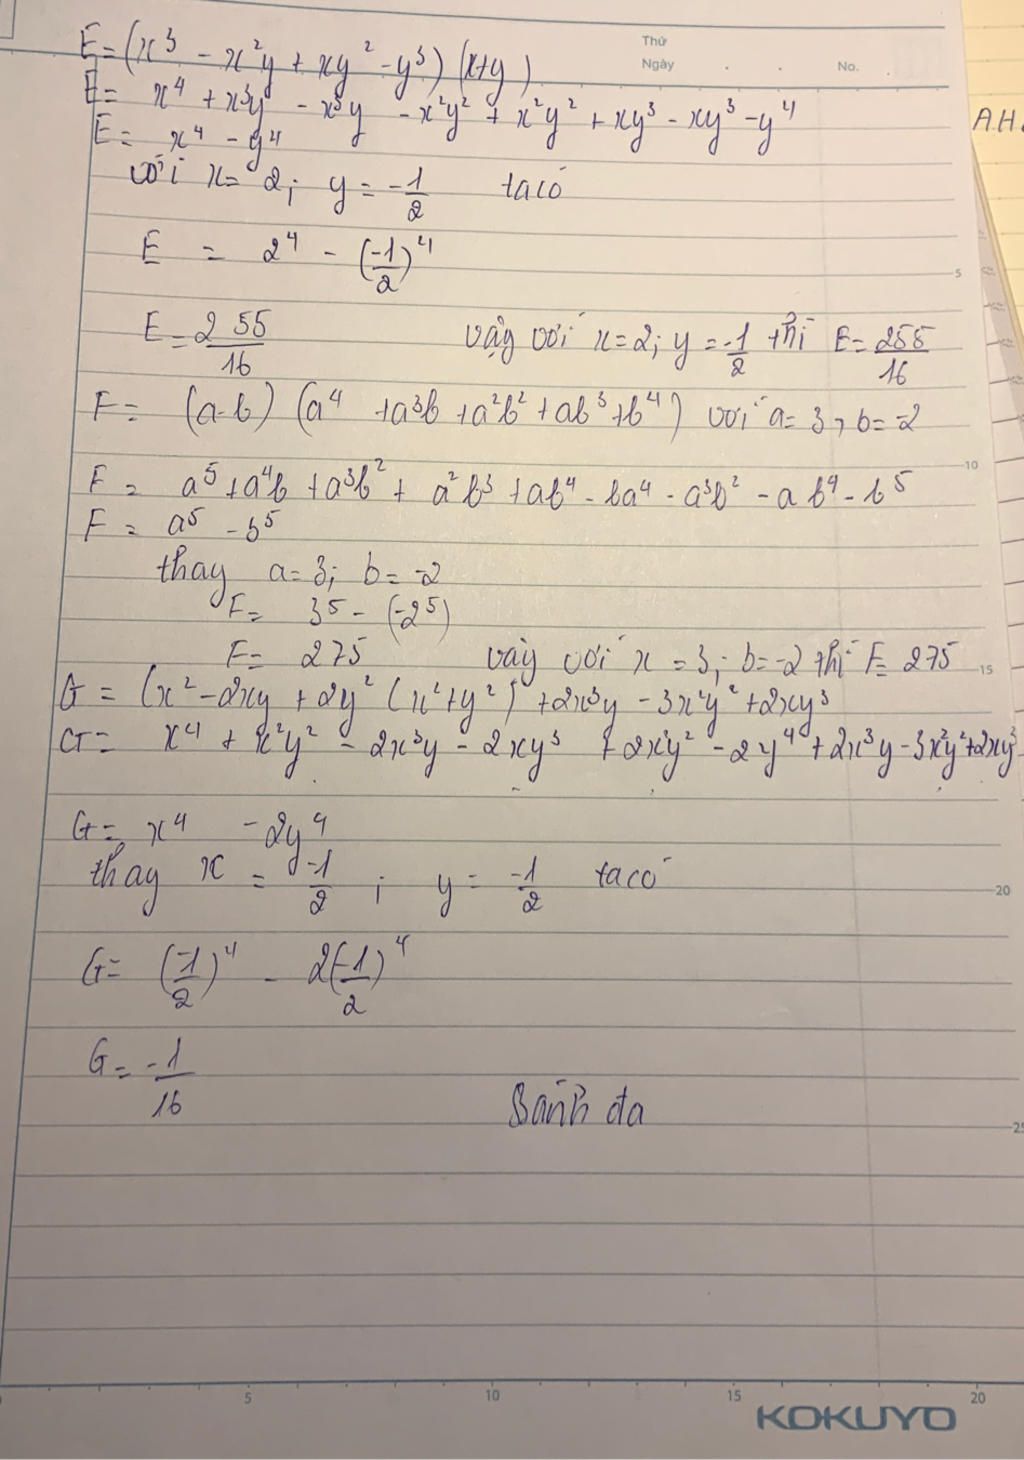 Thứ
Ngày . . No.
E = (x³ - x²y + xy² - y³) (x+y)
E = x⁴ + x³y - x³y - x²y² + x²y² + xy³ - xy³ - y⁴
A.H.
E = x⁴ - y⁴
với x = 2; y = -1/2 ta có
E = 2⁴ - (-1/2)⁴
5
E = 255/16 vậy với x = 2; y = -1/2 thì E = 255/16
F = (a-b) (a⁴ + a³b + a²b² + ab³ + b⁴) với a = 3, b = -2
10
F = a⁵ + a⁴b + a³b² + a²b³ + ab⁴ - ba⁴ - a³b² - ab⁴ - b⁵
F = a⁵ - b⁵
thay a = 3; b = -2
F = 3⁵ - (-2⁵)
F = 275 vậy với x = 3; b = -2 thì F = 275
15
G = (x² - 2xy + 2y² (x² + y²) + 2x³y - 3x²y² + 2xy³
G = x⁴ + x²y² - 2x³y - 2xy³ + 2x²y² - 2y⁴ + 2x³y - 3x²y² + 2xy³
G = x⁴ - 2y⁴
thay x = -1/2 ; y = -1/2 ta có
20
G = (-1/2)⁴ - 2(-1/2)⁴
G = -1/16
Bánh đa
25
5 10 15 20
KOKUYO